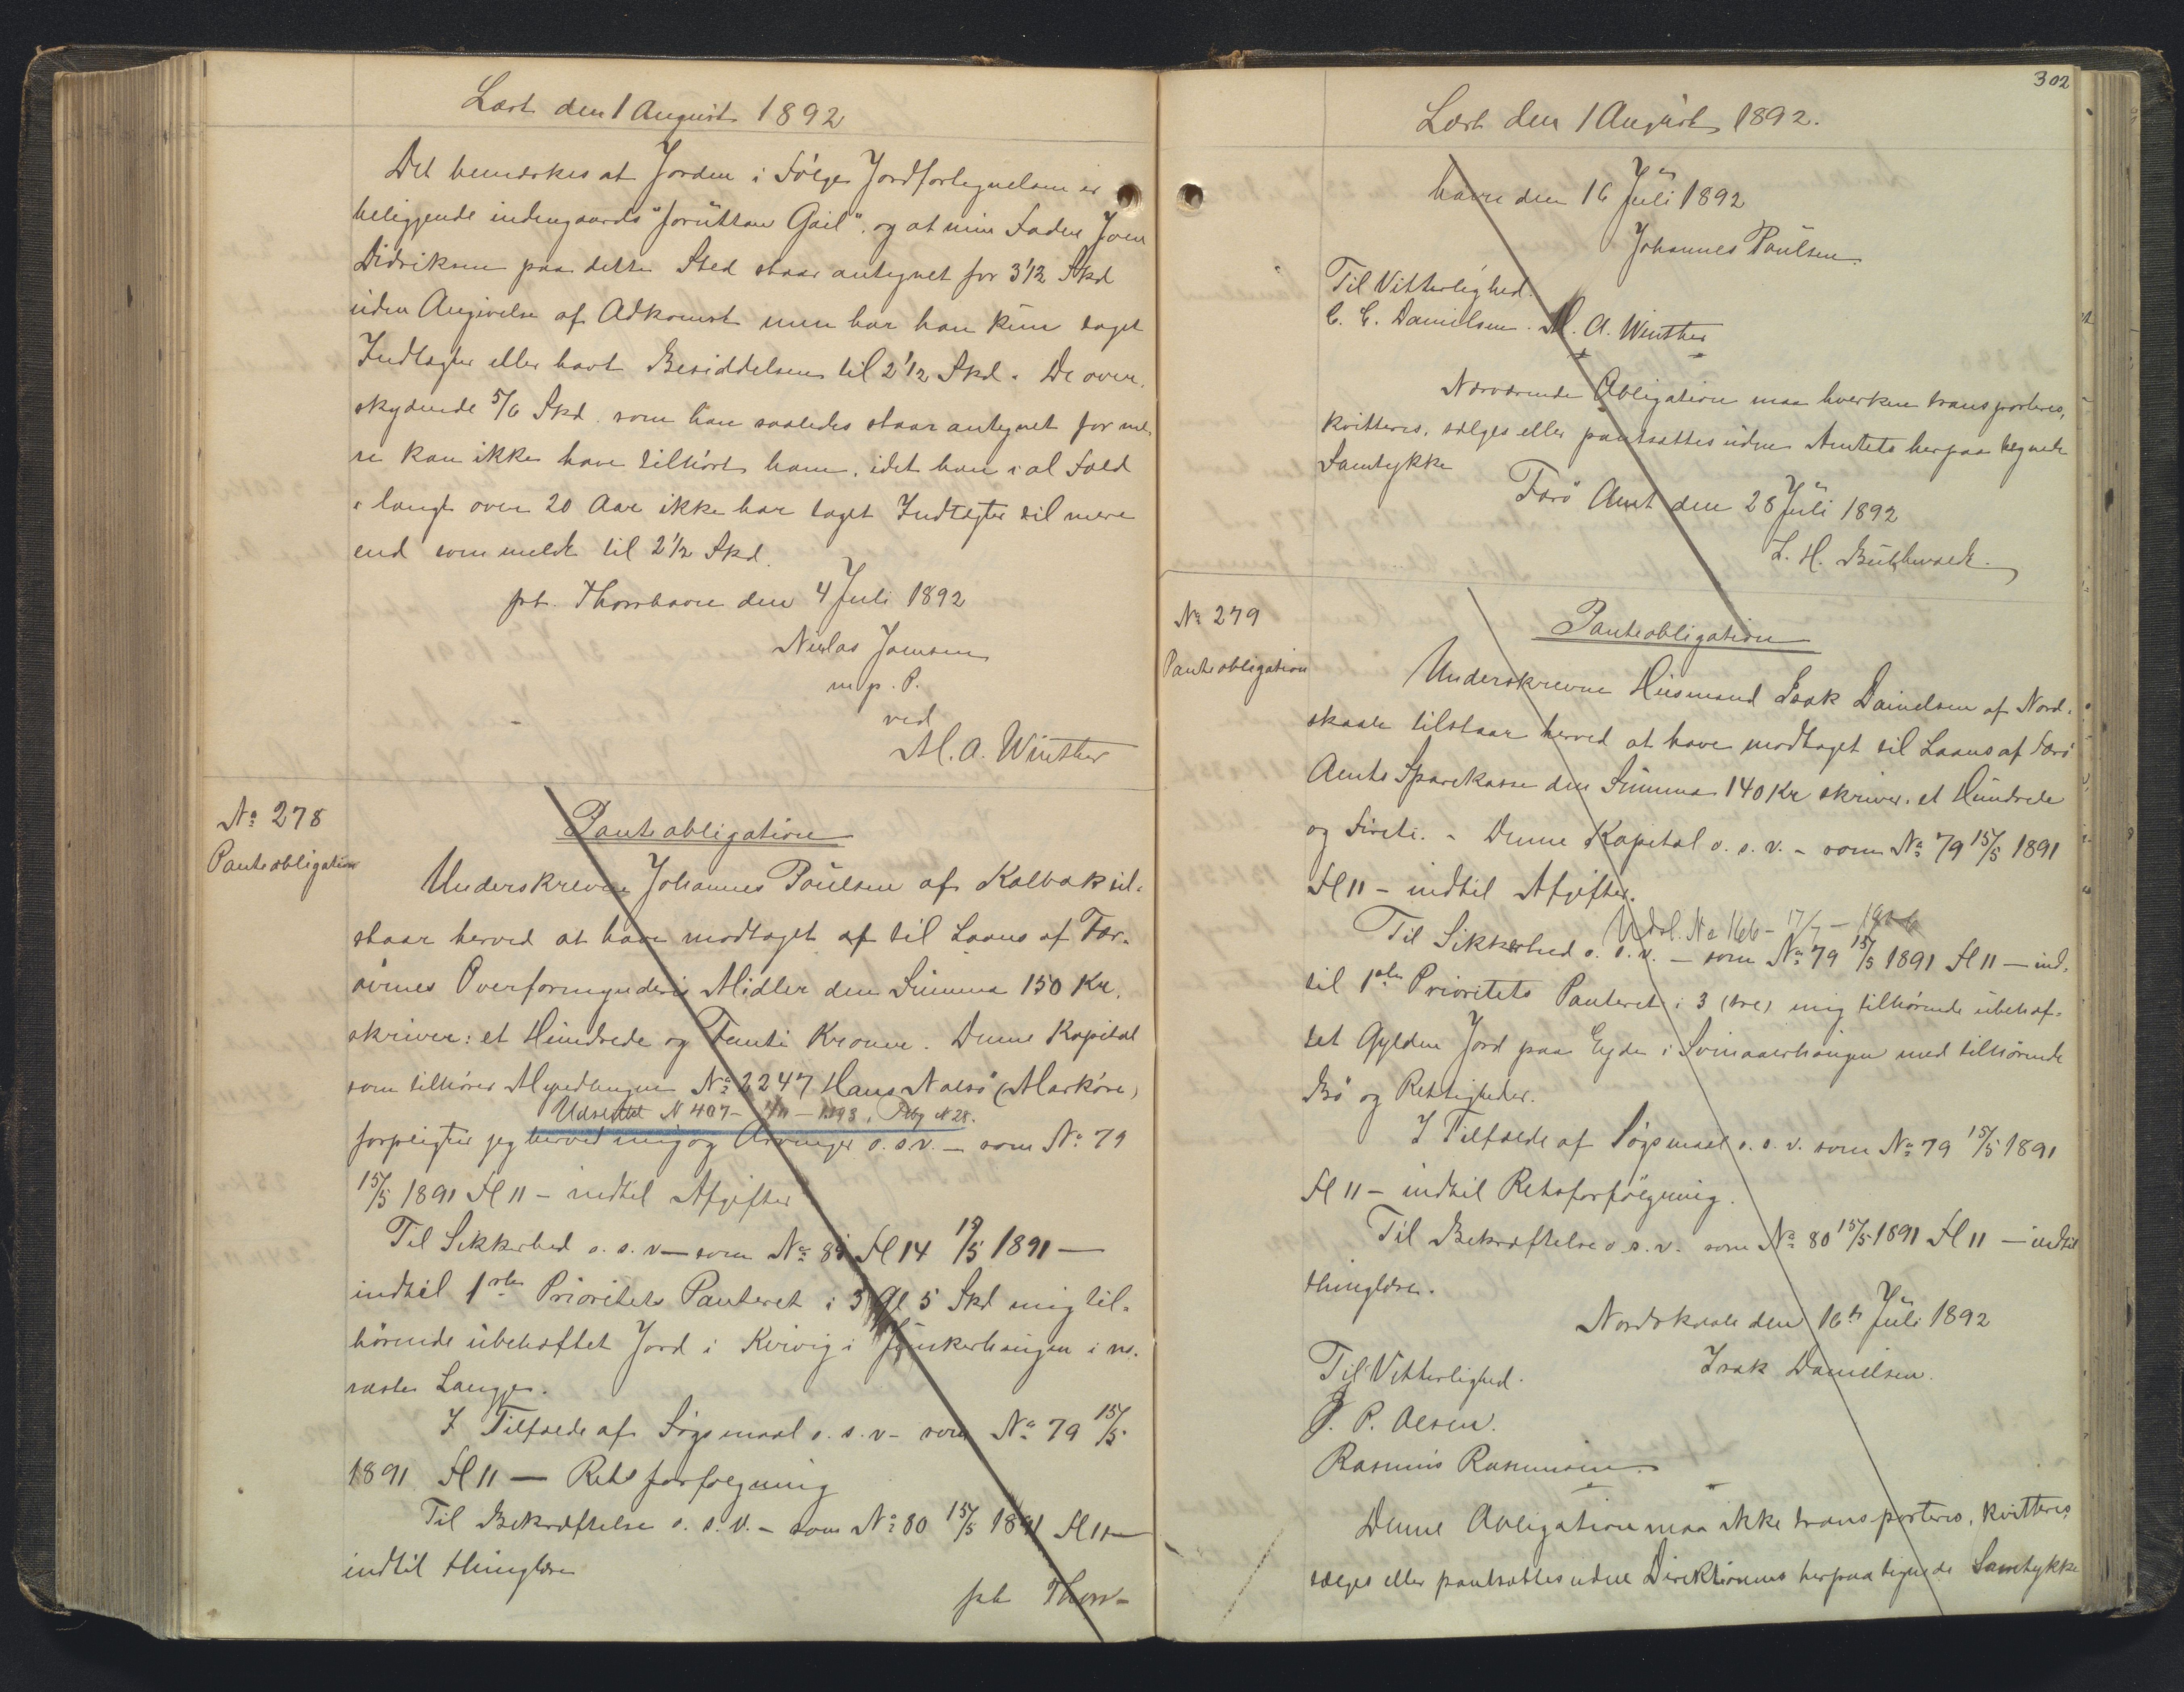 Læst den 1 August 1892
Det bemærkes at Jorden i Følge Jordfortegnelsen er
beliggende indengaards "foruttan Gail", og at min Fader Joen
Didriksen paa dette Sted staar antegnet for 3 1/2 Skd
uden Angivelse af Adkomst men har han kun taget
Indtægter eller havt Besiddelsen til 2 1/2 Skd. De over-
skydende 5/6 Skd. som han saaledes staar antegnet for me-
re kan ikke have tilhørt ham, idet han i al Fald
i langt over 20 Aar ikke har taget Indtægter til mere
end som meldt til 2 1/2 Skd.
pt. Thorshavn den 4 Juli 1892
Niclas Joensen
m. p. P.
ved
M. A. Winther
No 278
Panteobligation
Panteobligation
Underskrevne Johannes Poulsen af Kalbak til-
staar herved at have modtaget af til Laans af Fær-
øernes Overformynderis Midler den Summa 150 Kr.
skriver: et Hundrede og Femti Kroner. Denne Kapital
som tilhører Myndlingen No 2247 Hans Nalsø (Markøre)
Udslettet N 407 - 4/11 - 1893. Pbg N 28.
forpligter jeg herved mig og Arvinger o.s.v. - som No 79
15/5 1891 Fl 11 - indtil Afgifter
Til Sikkerhed o. s. v - som No 85 Fl 14 15/5 1891 -
indtil 1ste Prioritets Panteret i 3 Gl 5 Skd mig til-
hørende ubehæftet Jord i Kvivig i Junkerhaugen i no-
raste Langgje.
I Tilfælde af Søgsmaal o. s. v - som No 79 15/5
1891 Fl 11 - Retsforfølgning
Til Bekræftelse o. s. v. - som No 80 15/5 1891 Fl 11 -
indtil thinglæses
pt Thors-
302
Læst den 1 August 1892.
havn den 16 Juli 1892
Johannes Poulsen.
Til Vitterlighed.
C. C. Danielsen. M. A. Winther
Nærværende Obligation maa hverken transporteres,
kvitteres, sælges eller pantsættes uden Amtets herpaa tegnede
Samtykke
Færø Amt den 28 Juli 1892
L. H. Buchwaldt.
No 279
Panteobligation
Panteobligation
Underskrevne Husmand Isak Danielsen af Nord-
skaale tilstaar herved at have modtaget til Laans af Færø
Amts Sparekasse den Summa 140 Kr skriver. et Hundrede
og Fireti. - Denne Kapital o. s. v. - som No 79 15/5 1891
Fl 11 - indtil Afgifter.
Udsl. No 166 - 17/7 -
Til Sikkerhed o. s. v. - som No 79 15/5 1891 Fl 11 - ind-
til 1ste Prioritets Panteret i 3 (tre) mig tilhørende ubehæf-
tet Gylden Jord paa Eyde i Svinaaerhaugen med tilhørende
Bø og Rettigheder.
I Tilfælde af Søgsmaal o. s. v. som No 79 15/5 1891
Fl 11 - indtil Retsforfølgning.
Til Bekræftelse o. s. v. som No 80 15/5 1891 Fl 11 - indtil
thinglæses.
Nordskaale den 16de Juli 1892
Til Vitterlighed.
Isak Danielsen.
J. P. Olsen.
Rasmus Rasmussen.
Denne Obligation maa ikke transporteres, kvitteres
sælges eller pantsættes uden Direktionens herpaa tegnede Samtykke